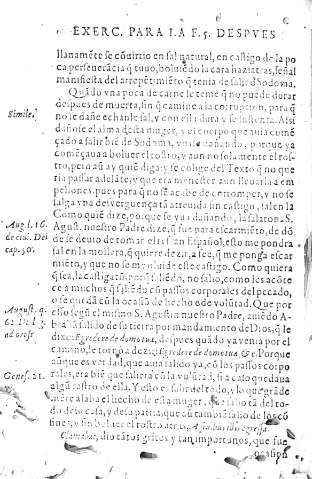 EXERC. PARA LA F. 5. DESPVES
llanamẽte se cõuirtio en sal natural, en castigo de la po
ca perseuerãcia q̃ tuuo, boluiẽdo la cara hazia tras, señal
manifiesta del arrepẽtimiẽto q̃ tenia de salir d̃ Sodoma.
Quãdo vna poca de carne se teme q̃ no puede durar
despues de muerta, sin q̃ camine a la corrupcion, para q̃
Simile.
no se dañe echanle sal, y con ella dura y se sustenta. Assi
dañose el alma desta muger, y el cuerpo que auia comẽ
çado a salir biẽ de Sodoma, dañando, porque ya
començaua a boluer el rostro, y aun no solamente el ros-
tro, pero aũ ay quiẽ diga, y se colige del Texto q̃ no que
ria passar adelãte, y que era menester aun lleuarla a em
pellones, pues para q̃ no se acabe de corromper, y no se
salga vna desverguença tã atreuida sin castigo, salen la
Como quiẽ dize, porque se yua dañando, la salaron. S.
Aug. l. 16.
de ciui. Dei
cap. 30.
Agust. nuestro Padre dize, q̃ fue para escarmiẽto, de dõ
de se deuio de tomar el refran Español, esto me pondra
sal en la mollera, q̃ quiere dezir, a fee, q̃ me ponga escar
miẽto, y que no se me oluide este castigo. Como quiera
q̃ sea, la castigarõ porq̃ saliẽdo, no salio, como les acõte
ce a muchos q̃ saliẽdo cõ passos corporales del pecado,
o se quedã cũ la ocasiõ de hecho o de volũtad. Que por
August. q.
esso segũ el mismo S. Agustin nuestro Padre, auiẽdo A-
brahã salido de su tierra por mandamiento de Dios, q̃ le
dixo: Egredere de domo tua, despues quãdo ya venia por el
camino, le tornò a dezir, Egredere de domo tua, &c. Porque
Genes. 21.
aũque es verdad, que auia salido ya, cõ los passos corpo
rales, era biẽ que saliera cũ la volũtad, si a caso quedaua
algũ rastro de ella. Y esto es salir del todo, y lo que grãde
mẽte alaba el hecho de esta muger, que salio tã del to-
do de la casa, y de su patria, que aũ tambiẽ salio de los cõ
fines, y sin boluer el rostro atras. A finibus illis egressa.
Clamauit, dio tãtos gritos y tan importunos, que fue
ocasion